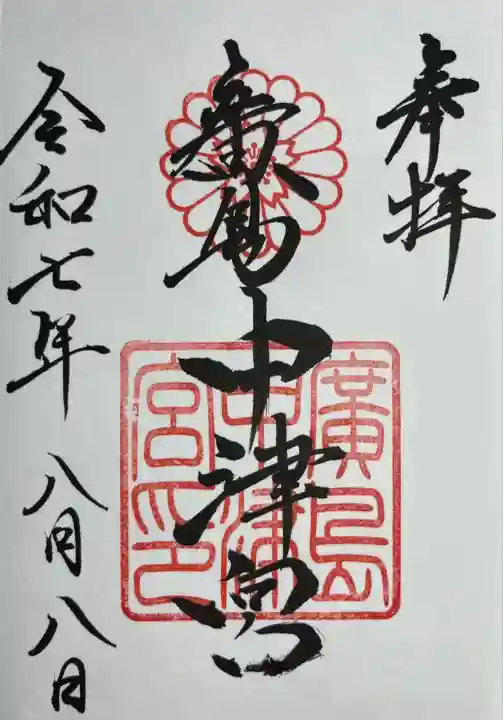 奉拝
廣島中津宮
廣島
中津
宮印
令和七年 八月八日